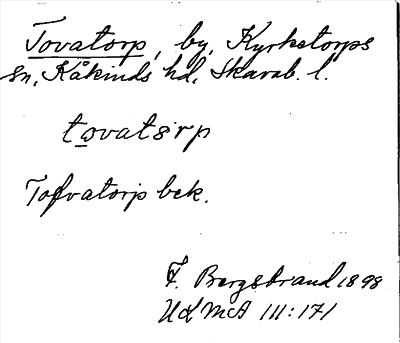 Tovatorp, by, Kyrketorps
sn, Kåkinds hd, Skarab. l.
tovatorp
Tofvatorp bek.
F. Bergstrand 1898
Ud McA III: 171